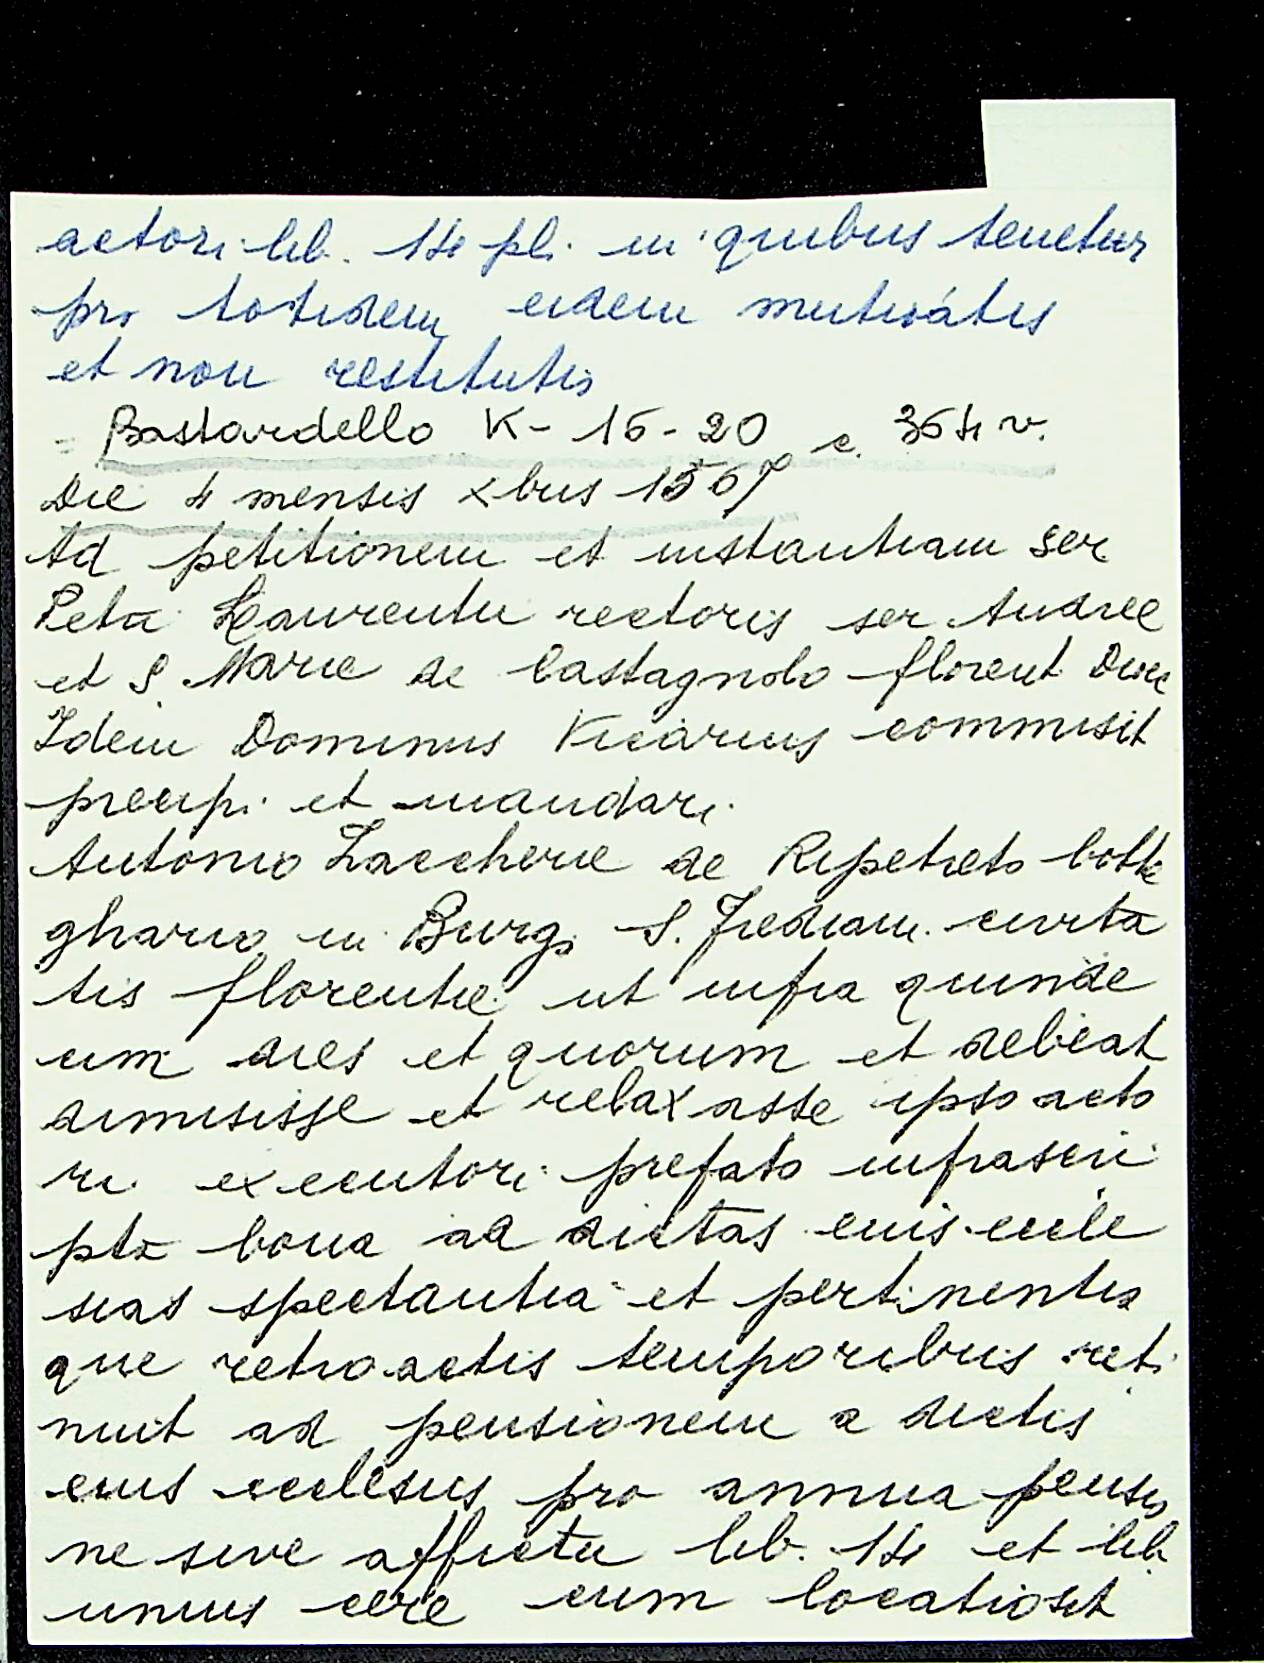 actori lib. 14 pl. in quibus tenetur
pro totidem eidem mutuatis
et non restitutis
= Bastardello K - 15 - 20 c. 364 v.
Die 4 mensis xbris 1567
Ad petitionem et instantiam ser
Petri Laurentii rectoris ser Andree
et S. Marie de Castagnolo florent. Dioc
Idem Dominus Vicarius commisit
precipi et mandari
Antonio Zaccherie de Ripetreto botte
ghario in Burg. S. Frediani civita
tis florentie ut infra quinde
cim dies et quorum et debeat
dimisisse et relaxasse ipso acto
ri executori prefato infrascri
pta bona ad dictas eius eccle
sias spectantia et pertinentia
que retroactis temporibus reti
nuit ad pensionem a dictis
eius ecclesiis pro annua pensio
ne sive affictu lib. 14 et lib.
unius cere cum locatio sit